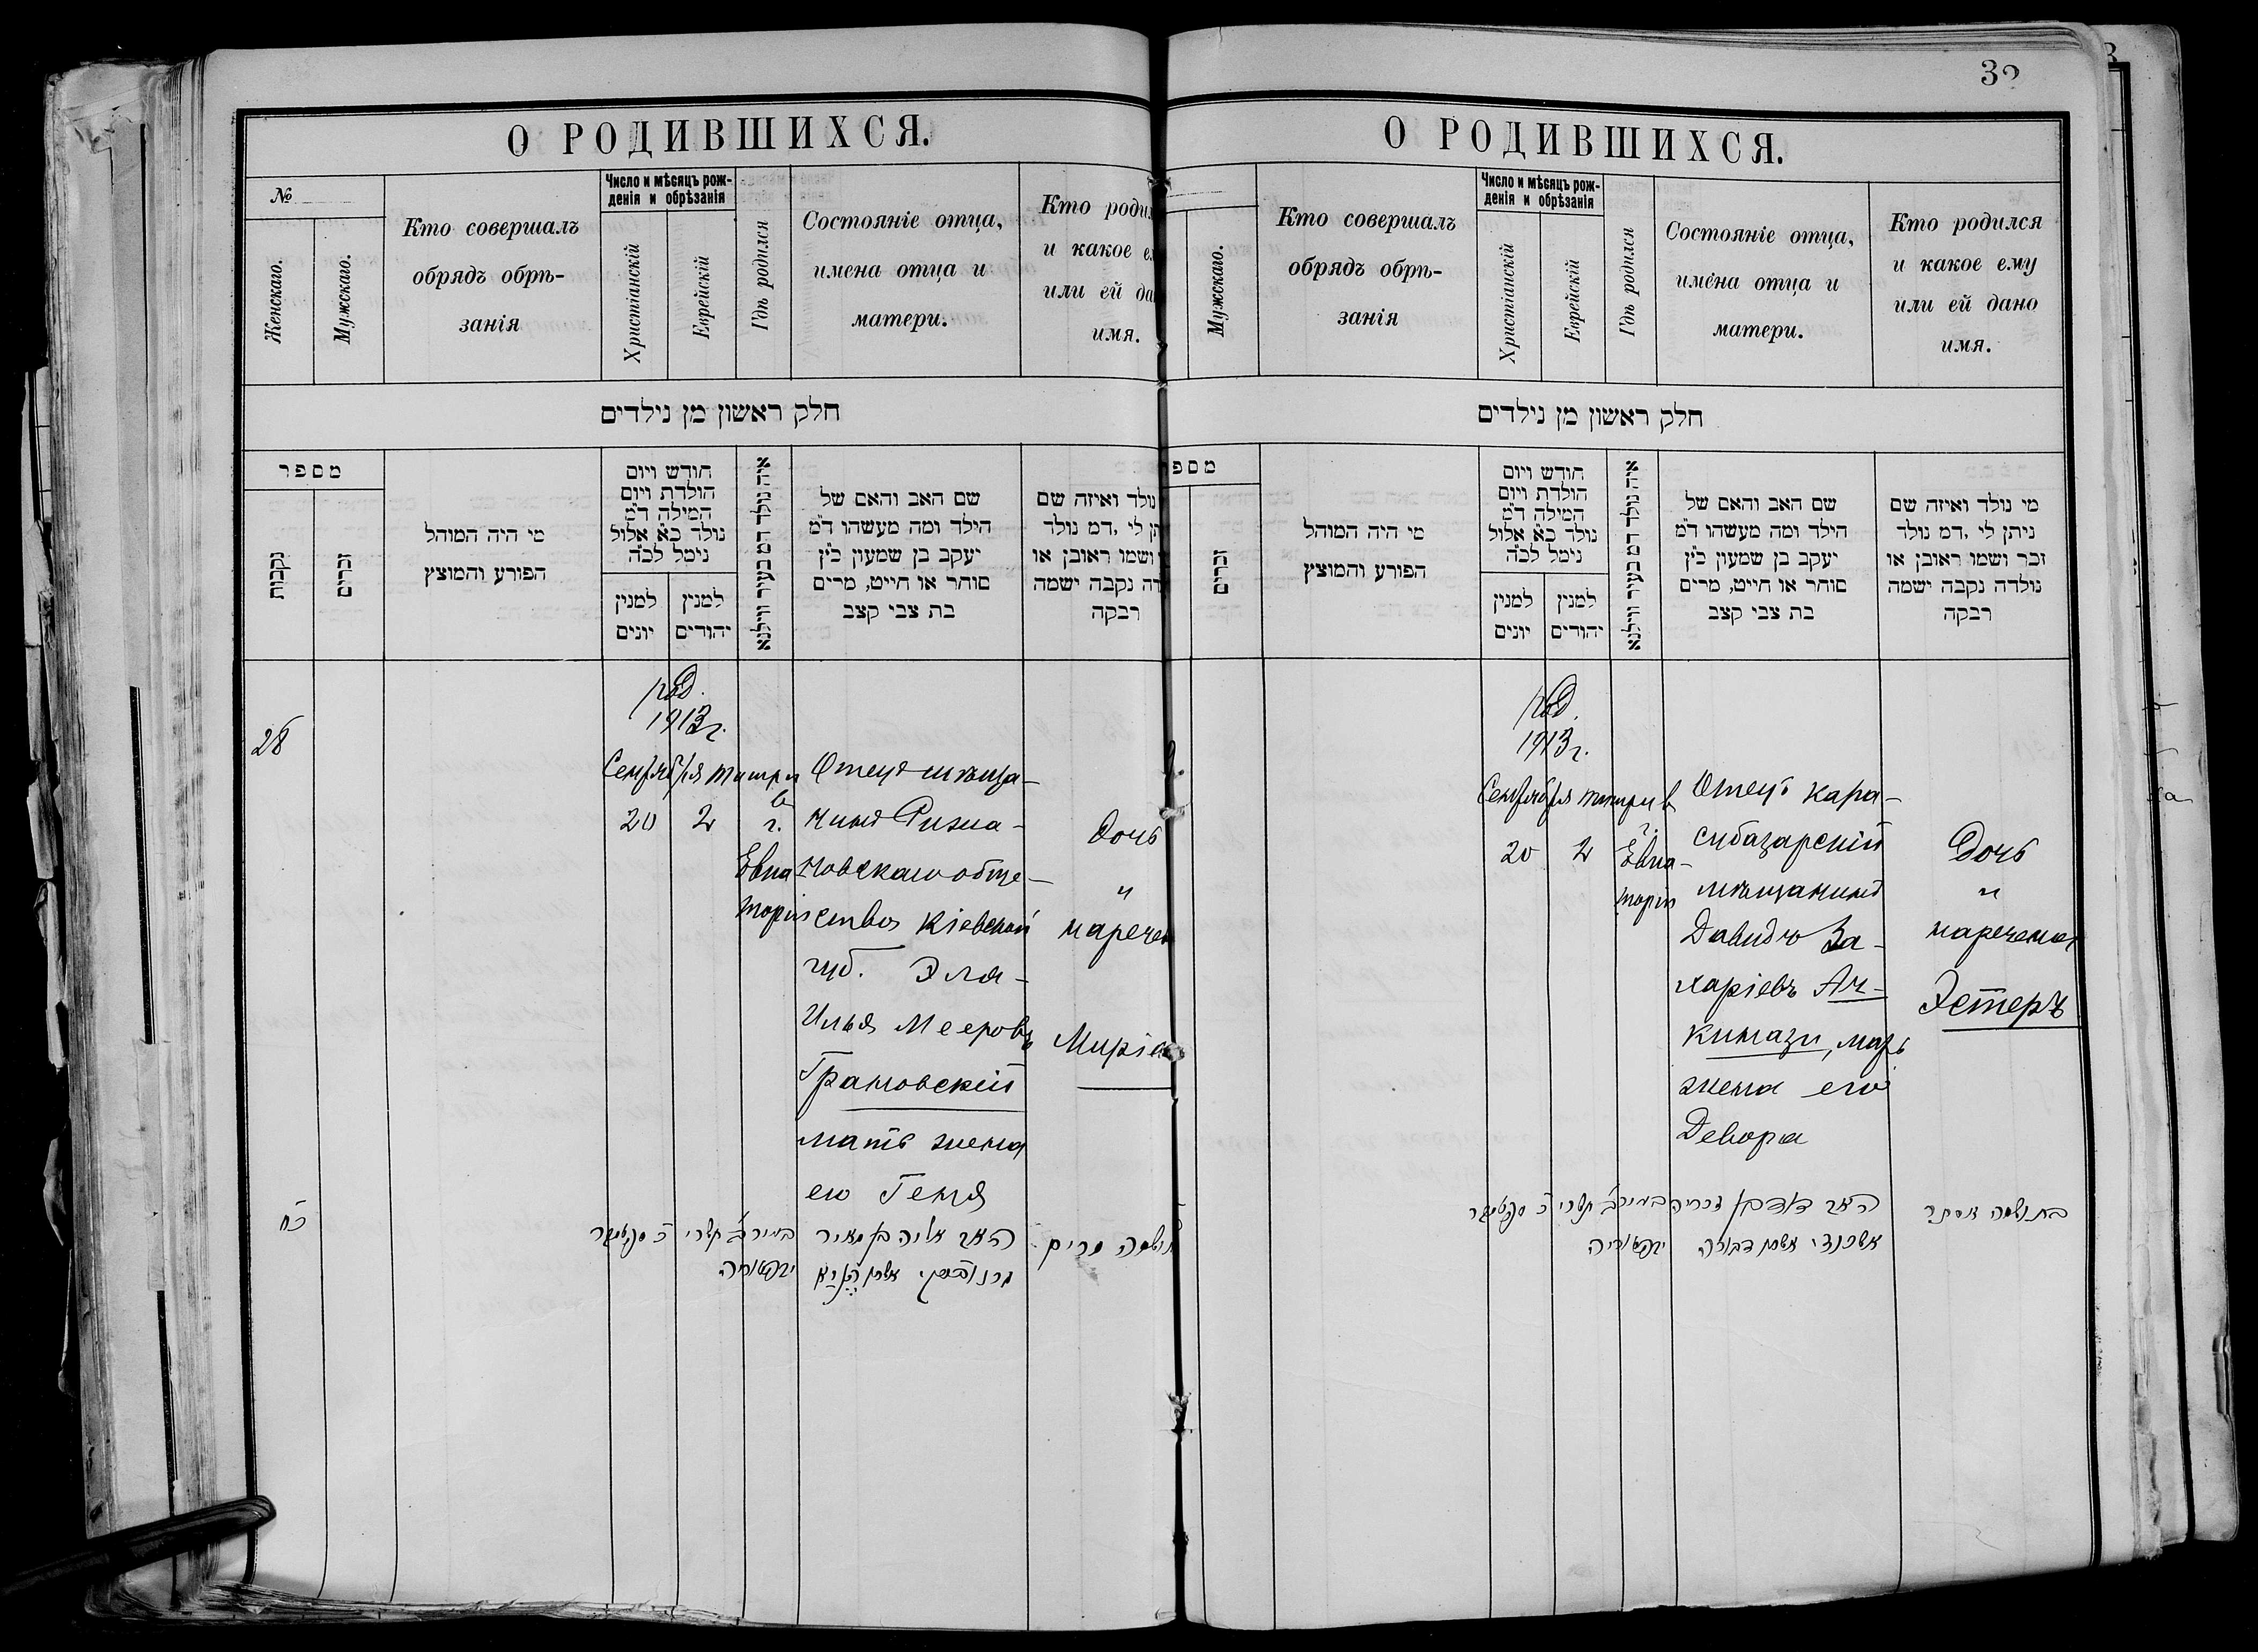 32
О РОДИВШИХСЯ.
№
Женскаго.
Мужскаго.
Кто совершалъ
обрядъ обрѣ-
занія
Число и мѣсяцъ рож-
денія и обрѣзанія
Христіанскій
Еврейскій
Гдѣ родился
Состояніе отца,
имена отца и
матери.
Кто роди
и какое е
или ей да
имя.
חלק ראשון מן נילדים
מספר
נקבות
זכרים
מי היה המוהל
הפורע והמוצץ
חודש ויום
הולדת ויום
המילה ד"מ
נולד כ"א אלול
נימל לכ"ה
למנין
יונים
למנין
יהודים
איה נולד דמ בעיר ווילנא
שם האב והאם של
הילד ומה מעשהו ד"מ
יעקב בן שמעון כ"ץ
סוחר או חייט, מרים
בת צבי קצב
נולד ואיזה שם
תן לי ,דמ נולד
ושמו ראובן או
דה נקבה ישמה
רבקה
28
год.
1913 г.
Сентября
20
тишри
2
в
г.
Евпа
торіи
Отецъ мѣща-
нинъ
новскаго обще-
ства Кіевской
губ. Эліа-
Илья Мееровъ
Грановскій
мать жена
его Геня
Дочь
"
наречен
Миріа
כח
כ ספטמבר
ב תשרי
בעיר
יבפטוריה
האב אליה בן מאיר
גרנובסקי אשתו
ושמה מרים
О РОДИВШИХСЯ.
Мужскаго.
Кто совершалъ
обрядъ обрѣ-
занія
Число и мѣсяцъ рож-
денія и обрѣзанія
Христіанскій
Еврейскій
Гдѣ родился
Состояніе отца,
имена отца и
матери.
Кто родился
и какое ему
или ей дано
имя.
חלק ראשון מן נילדים
מספ
זכרים
מי היה המוהל
הפורע והמוצץ
חודש ויום
הולדת ויום
המילה ד"מ
נולד כ"א אלול
נימל לכ"ה
למנין
יונים
למנין
יהודים
איה נולד דמ בעיר ווילנא
שם האב והאם של
הילד ומה מעשהו ד"מ
יעקב בן שמעון כ"ץ
סוחר או חייט, מרים
בת צבי קצב
מי נולד ואיזה שם
ניתן לי ,דמ נולד
זכר ושמו ראובן או
נולדה נקבה ישמה
רבקה
год.
1913 г.
Сентября
20
тишри
2
в
г.
Евпа-
торіи
Отецъ кара-
субазарскій
мѣщанинъ
Давидъ За-
харіевъ Аш-
кинази, мать
жена его
Девора
Дочь
"
наречена
Эстеръ
כ ספטמבר
ב תשרי
בעיר
יבפטוריה
האב דוד בן זכריה
אשכנזי אשתו דבורה
בת ושמה אסתר